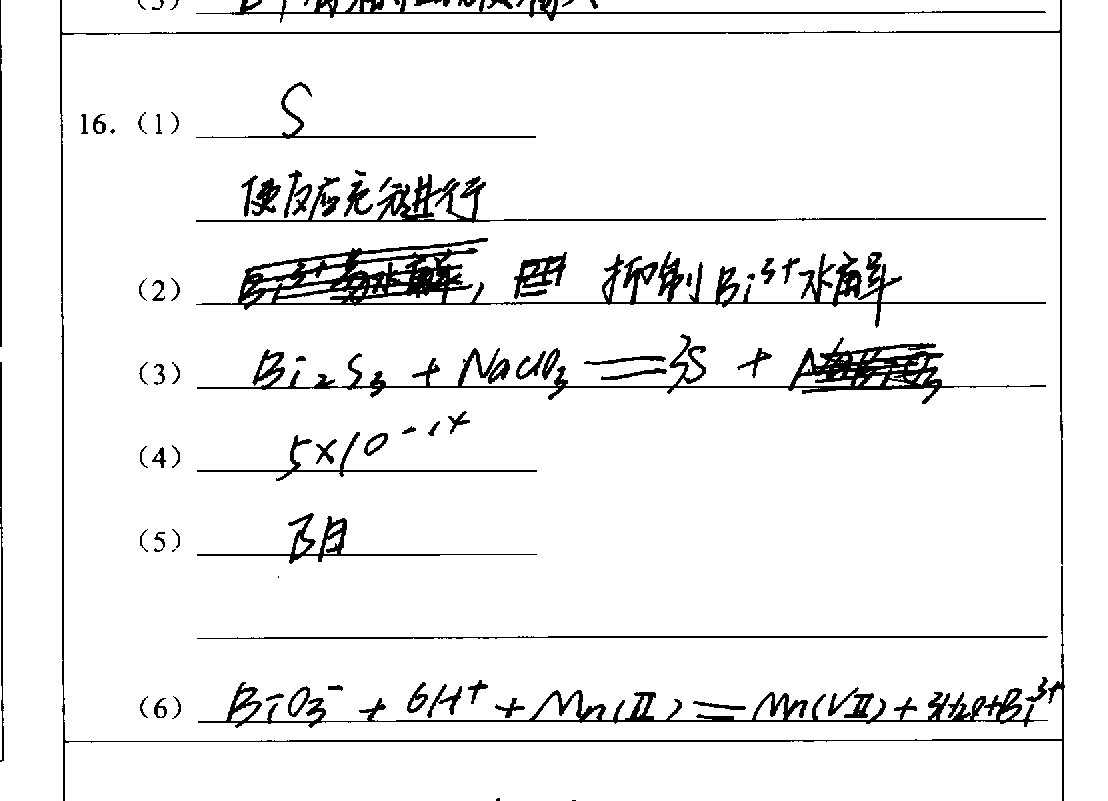 16.（1） S
使反应充分进行
（2） 抑制Bi³⁺水解
（3） Bi₂S₃ + NaClO₃ == 3S +
（4） 5×10⁻¹⁴
（5） 阴
（6） BiO₃⁻ + 6H⁺ + Mn(II) == Mn(VII) + 3H₂O + Bi³⁺